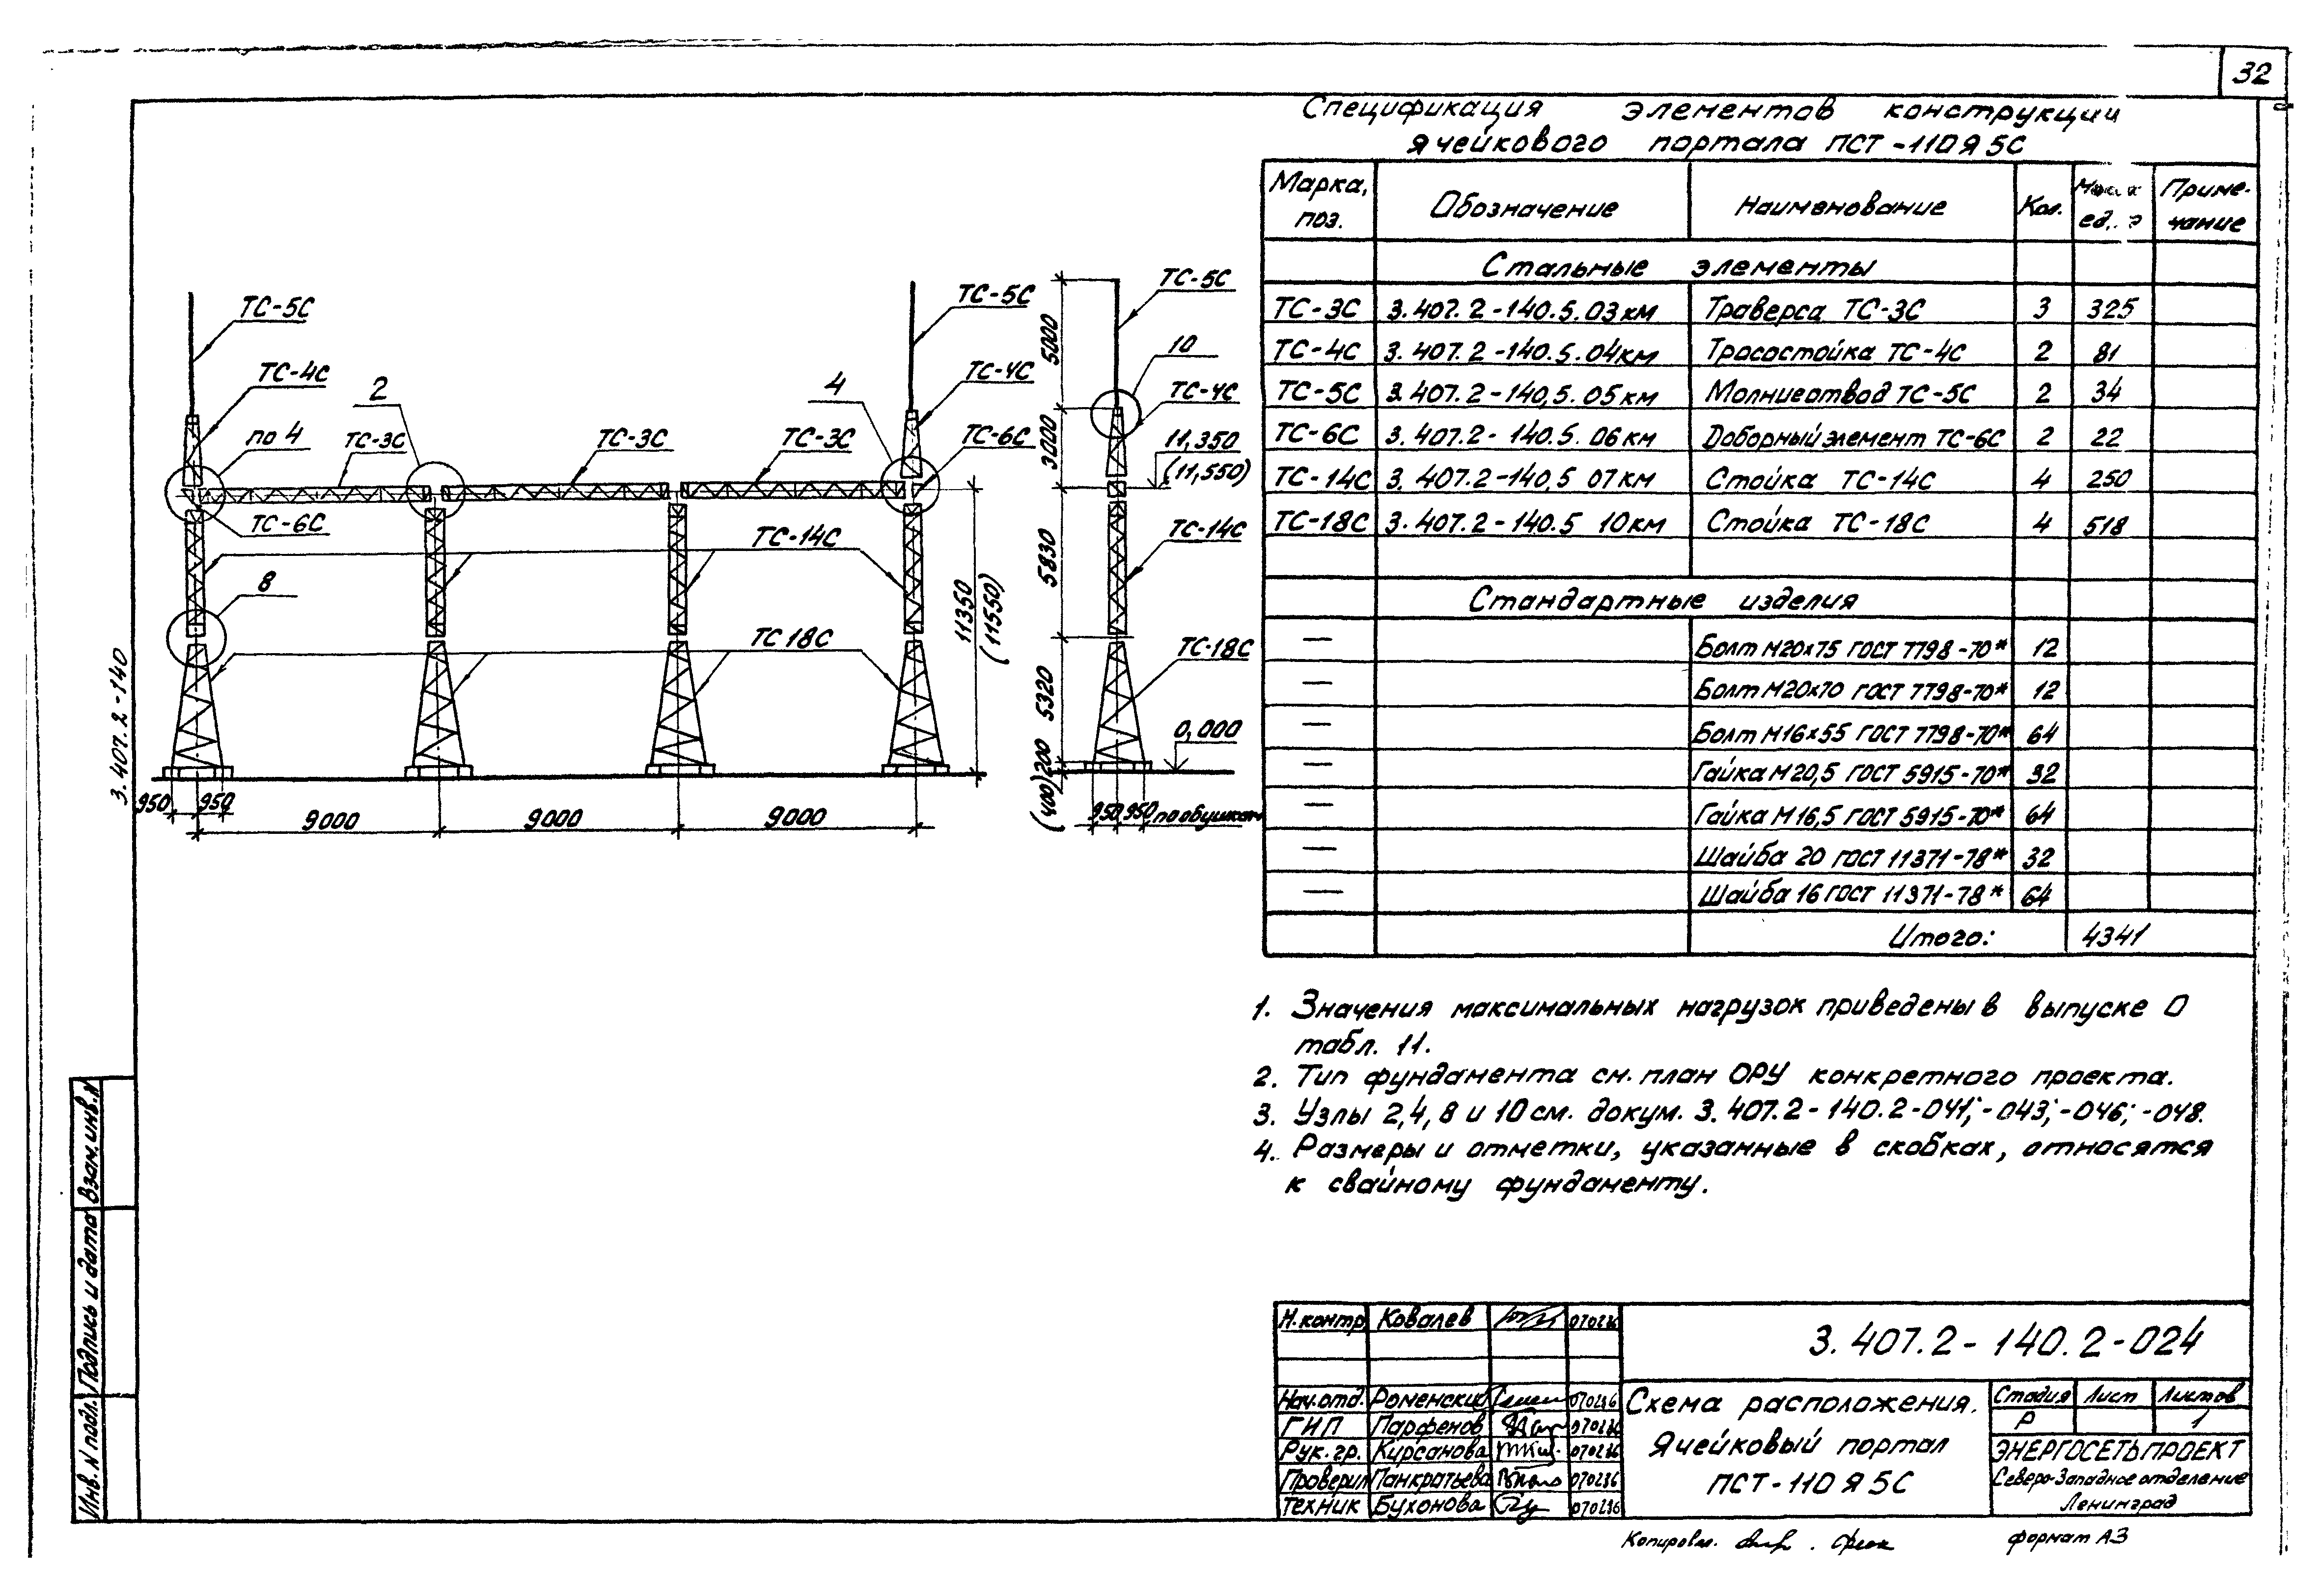 32
Спецификация элементов конструкции
ячейкового портала ПСТ-110Я5С
Марка, поз. Обозначение Наименование Кол. ед. Приме-чание
Стальные элементы
ТС-3С 3.407.2-140.5.03км Траверса ТС-3С 3 325
ТС-4С 3.407.2-140.5.04км Тросостойка ТС-4С 2 81
ТС-5С 3.407.2-140.5.05км Молниеотвод ТС-5С 2 34
ТС-6С 3.407.2-140.5.06км Доборный элемент ТС-6С 2 22
ТС-14С 3.407.2-140.5 07км Стойка ТС-14С 4 250
ТС-18С 3.407.2-140.5 10км Стойка ТС-18С 4 518
Стандартные изделия
— Болт М20х75 ГОСТ 7798-70* 12
— Болт М20х70 ГОСТ 7798-70* 12
— Болт М16х55 ГОСТ 7798-70* 64
— Гайка М20,5 ГОСТ 5915-70* 32
— Гайка М16,5 ГОСТ 5915-70* 64
— Шайба 20 ГОСТ 11371-78* 32
— Шайба 16 ГОСТ 11371-78* 64
Итого: 4341
ТС-5С
ТС-4С
по 4
ТС-3С
2
ТС-3С
ТС-3С
4
ТС-5С
ТС-4С
ТС-6С
ТС-6С
ТС-14С
8
ТС 18С
11350
(11550)
950
950
9000
9000
9000
ТС-5С
10
ТС-4С
11,350
(11,550)
ТС-14С
ТС-18С
0,000
5000
3000
5830
5320
(400)200
950
950
по обушкам
3.407.2-140
1. Значения максимальных нагрузок приведены в выпуске 0
табл. 11.
2. Тип фундамента см. план ОРУ конкретного проекта.
3. Узлы 2,4,8 и 10 см. докум. 3.407.2-140.2-041;-043;-046;-048.
4. Размеры и отметки, указанные в скобках, относятся
к свайному фундаменту.
Инв. N подл.
Подпись и дата
Взам.инв.N
Н.контр Ковалев 070286
Нач.отд. Роменский 070286
ГИП Парфенов 070286
Рук.гр. Кирсанова 070286
Проверил Панкратьева 070286
Техник Бухонова 070286
3.407.2-140.2-024
Схема расположения.
Ячейковый портал
ПСТ-110Я5С
Стадия Лист Листов
Р 1
ЭНЕРГОСЕТЬПРОЕКТ
Северо-Западное отделение
Ленинград
Копировал.
формат А3